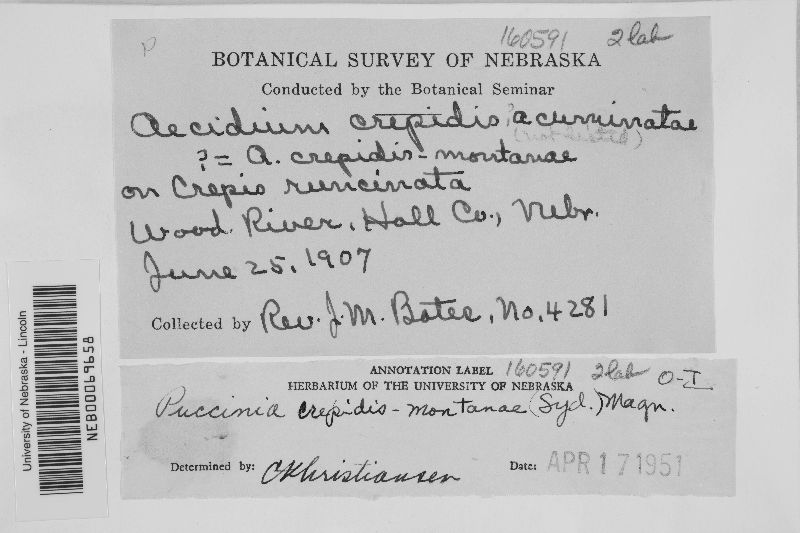 160591 2 lab
BOTANICAL SURVEY OF NEBRASKA
Conducted by the Botanical Seminar
Aecidium crepidis acuminatae
(not listed)
? = A. crepidis-montanae
on Crepis runcinata
Wood River, Hall Co., Nebr.
June 25, 1907
Collected by Rev. J. M. Bates, No. 4281
ANNOTATION LABEL 160591 2 lab
HERBARIUM OF THE UNIVERSITY OF NEBRASKA O-I
Puccinia crepidis-montanae (Syd.) Magn.
Determined by: CKhristiansen
Date: APR 17 1951
University of Nebraska - Lincoln
NEB00069658